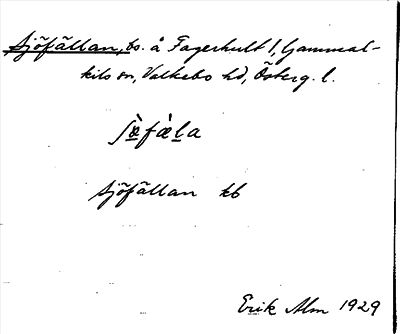 Sjöfällan, bs. å Fagerhult 1, Gammal-
kils sn, Valkebo hd, Österg. l.
ʃø̀fæḷa
Sjöfällan kb
Erik Alm 1929